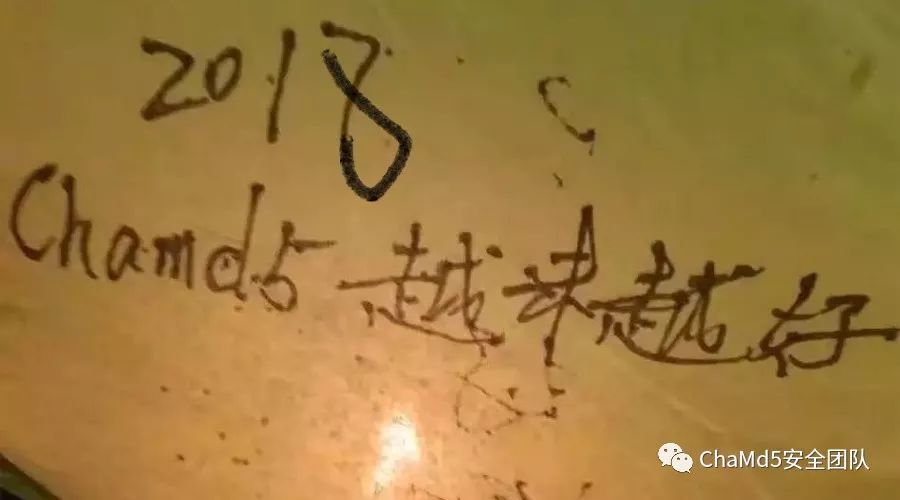 2018
Chamd5越来越好
ChaMd5安全团队